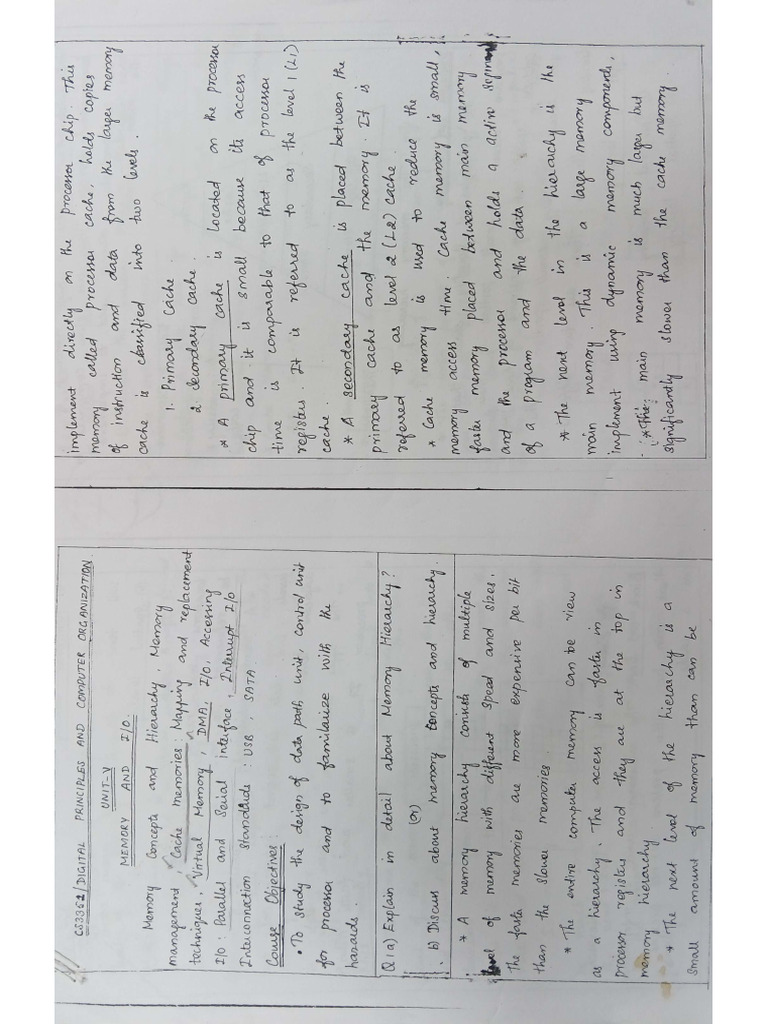 CS3351/DIGITAL PRINCIPLES AND COMPUTER ORGANIZATION
UNIT-V
MEMORY AND I/O.
Memory Concepts and Hierarchy, Memory
management, Cache memories: Mapping and replacement
techniques, Virtual Memory, DMA, I/O, Accessing
I/O: Parallel and Serial interface, Interrupt I/O
Interconnection Standards: USB, SATA.
Course Objectives:
• To study the design of data path unit, control unit
for processor and to familarize with the
hazards
Q1 a) Explain in detail about Memory Hierarchy?
(or)
b) Discuss about memory concepts and hierarchy.
* A memory hierarchy consists of multiple
level of memory with different speed and sizes.
The faster memories are more expensive per bit
than the slower memories.
* The entire computer memory can be view
as a hierarchy. The access is faster in
processor registers and they are at the top in
memory hierarchy.
* The next level of the hierarchy is a
small amount of memory than can be
implement directly on the processor chip. This
memory called processor cache, holds copies
of instruction and data from the larger memory
cache is classified into two levels.
1. Primary Cache.
2. Secondary cache.
* A primary cache is located on the processor
chip and it is small because its access
time is comparable to that of processor
registers. It is referred to as the level 1 (L1)
cache.
* A secondary cache is placed between the
primary cache and the memory. It is
referred to as level 2 (L2) cache.
* Cache memory is used to reduce the
memory access time. Cache memory is small,
faster memory placed between main memory
and the processor and holds a active segment
of a program and the data.
* The next level in the hierarchy is the
main memory. This is a large memory
implement using dynamic memory components,
* The main memory is much larger but
significantly slower than the cache memory.